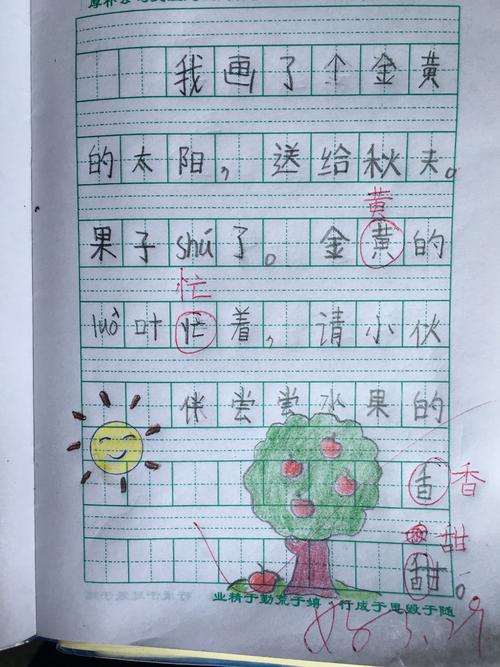 我画了个金黄
的太阳，送给秋天。
黄
果子shú了。金黄的
忙
luò叶忙着，请小伙
伴尝尝水果的
香 香
甜
甜。
业精于勤荒于嬉 行成于思毁于随